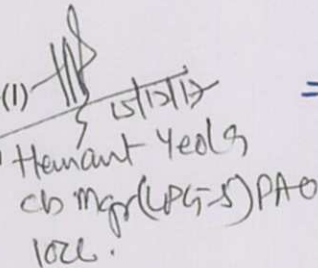 (1)
15/12/17
Hemant Yeole
Ch Mgr (LPG-S) PAO
IOCL.